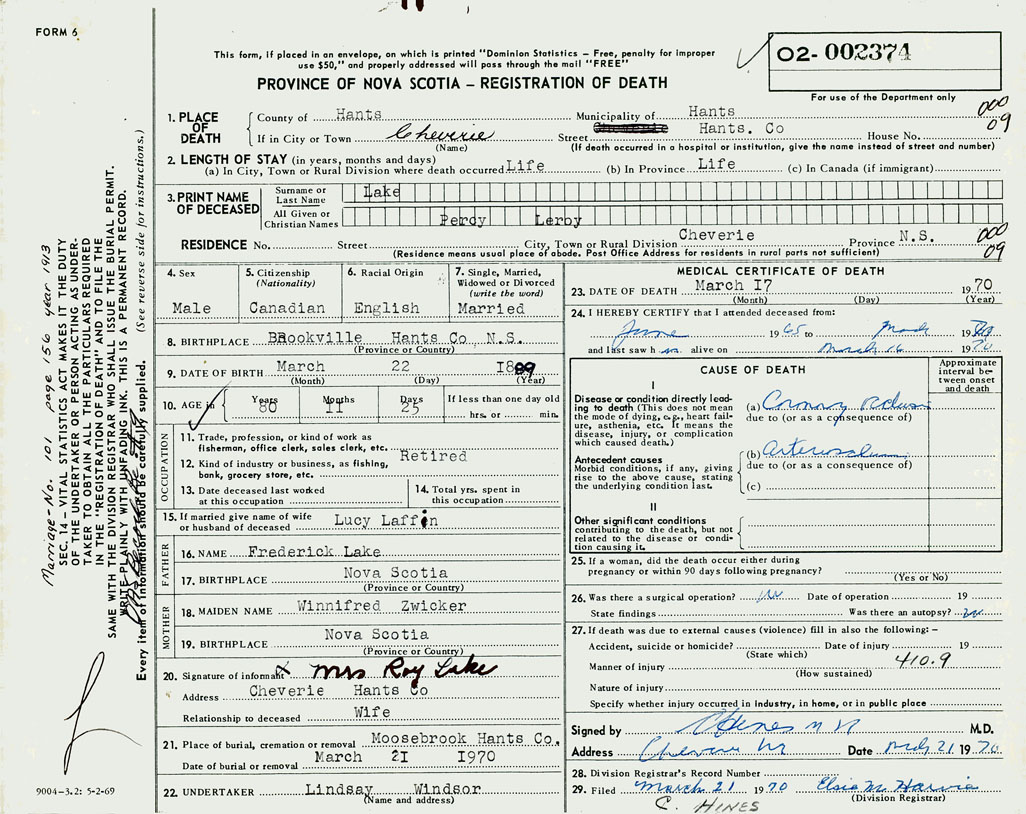 FORM 6
This form, if placed in an envelope, on which is printed "Dominion Statistics – Free, penalty for improper
use $50," and properly addressed will pass through the mail "FREE"
PROVINCE OF NOVA SCOTIA – REGISTRATION OF DEATH
02- 002374
For use of the Department only
1. PLACE OF DEATH
County of Hants Municipality of Hants
000
09
If in City or Town Cheverie Street Hants. Co House No.
(Name) (If death occurred in a hospital or institution, give the name instead of street and number)
2. LENGTH OF STAY (in years, months and days)
(a) In City, Town or Rural Division where death occurred Life (b) In Province Life (c) In Canada (if immigrant)
3. PRINT NAME OF DECEASED
Surname or Last Name Lake
All Given or Christian Names Percy Leroy
RESIDENCE No. Street City, Town or Rural Division Cheverie Province N.S.
000
09
(Residence means usual place of abode. Post Office Address for residents in rural parts not sufficient)
4. Sex
Male
5. Citizenship
(Nationality)
Canadian
6. Racial Origin
English
7. Single, Married,
Widowed or Divorced
(write the word)
Married
8. BIRTHPLACE Brookville Hants Co N.S.
(Province or Country)
9. DATE OF BIRTH March 22 1889
(Month) (Day) (Year)
10. AGE in Years Months Days If less than one day old
80 11 25 hrs. or min.
OCCUPATION
11. Trade, profession, or kind of work as
fisherman, office clerk, sales clerk, etc.
Retired
12. Kind of industry or business, as fishing,
bank, grocery store, etc.
13. Date deceased last worked
at this occupation
14. Total yrs. spent in
this occupation
15. If married give name of wife
or husband of deceased Lucy Laffin
FATHER
16. NAME Frederick Lake
17. BIRTHPLACE Nova Scotia
(Province or Country)
MOTHER
18. MAIDEN NAME Winnifred Zwicker
19. BIRTHPLACE Nova Scotia
(Province or Country)
20. Signature of informant x Mrs Roy Lake
Address Cheverie Hants Co
Relationship to deceased Wife
21. Place of burial, cremation or removal Moosebrook Hants Co.
Date of burial or removal March 21 1970
22. UNDERTAKER Lindsay Windsor
(Name and address)
MEDICAL CERTIFICATE OF DEATH
23. DATE OF DEATH March 17 1970
(Month) (Day) (Year)
24. I HEREBY CERTIFY that I attended deceased from:
June 1965 to March 1970
and last saw h m. alive on March 16 1970
CAUSE OF DEATH
Approximate
interval be-
tween onset
and death
I
Disease or condition directly lead-
ing to death (This does not mean
the mode of dying, e.g., heart fail-
ure, asthenia, etc. It means the
disease, injury, or complication
which caused death.)
(a) Coronary
due to (or as a consequence of)
Antecedent causes
Morbid conditions, if any, giving
rise to the above cause, stating
the underlying condition last.
(b)
due to (or as a consequence of)
(c)
II
Other significant conditions
contributing to the death, but not
related to the disease or condi-
tion causing it.
25. If a woman, did the death occur either during
pregnancy or within 90 days following pregnancy?
(Yes or No)
26. Was there a surgical operation? no Date of operation 19
State findings Was there an autopsy? no
27. If death was due to external causes (violence) fill in also the following: –
Accident, suicide or homicide? Date of injury 19
(State which)
410.9
Manner of injury
(How sustained)
Nature of injury
Specify whether injury occurred in industry, in home, or in public place
Signed by M.D.
Address Cheverie Date 21 1970
28. Division Registrar's Record Number
29. Filed March 21 1970 Elsie M. Harvie
(Division Registrar)
C. HINES
Marriage - No. 101 page 156 year 1913
SEC. 14 – VITAL STATISTICS ACT MAKES IT THE DUTY
OF THE UNDERTAKER OR PERSON ACTING AS UNDER-
TAKER TO OBTAIN ALL THE PARTICULARS REQUIRED
IN THE "REGISTRATION OF DEATH" AND TO FILE THE
SAME WITH THE DIVISION REGISTRAR WHO SHALL ISSUE THE BURIAL PERMIT.
WRITE PLAINLY WITH UNFADING INK. THIS IS A PERMANENT RECORD.
Every item of information should be carefully supplied. (See reverse side for instructions.)
9004-3.2: 5-2-69